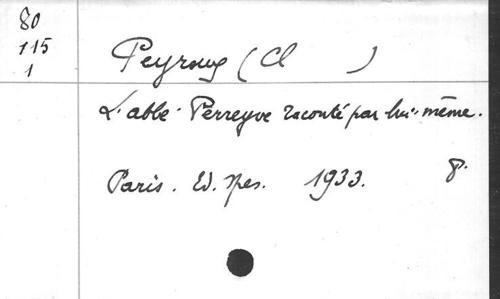 80
115
1
Peyroux (Cl )
L'abbé Perreyve raconté par lui-même.
Paris. Ed. Spes. 1933. 8°.